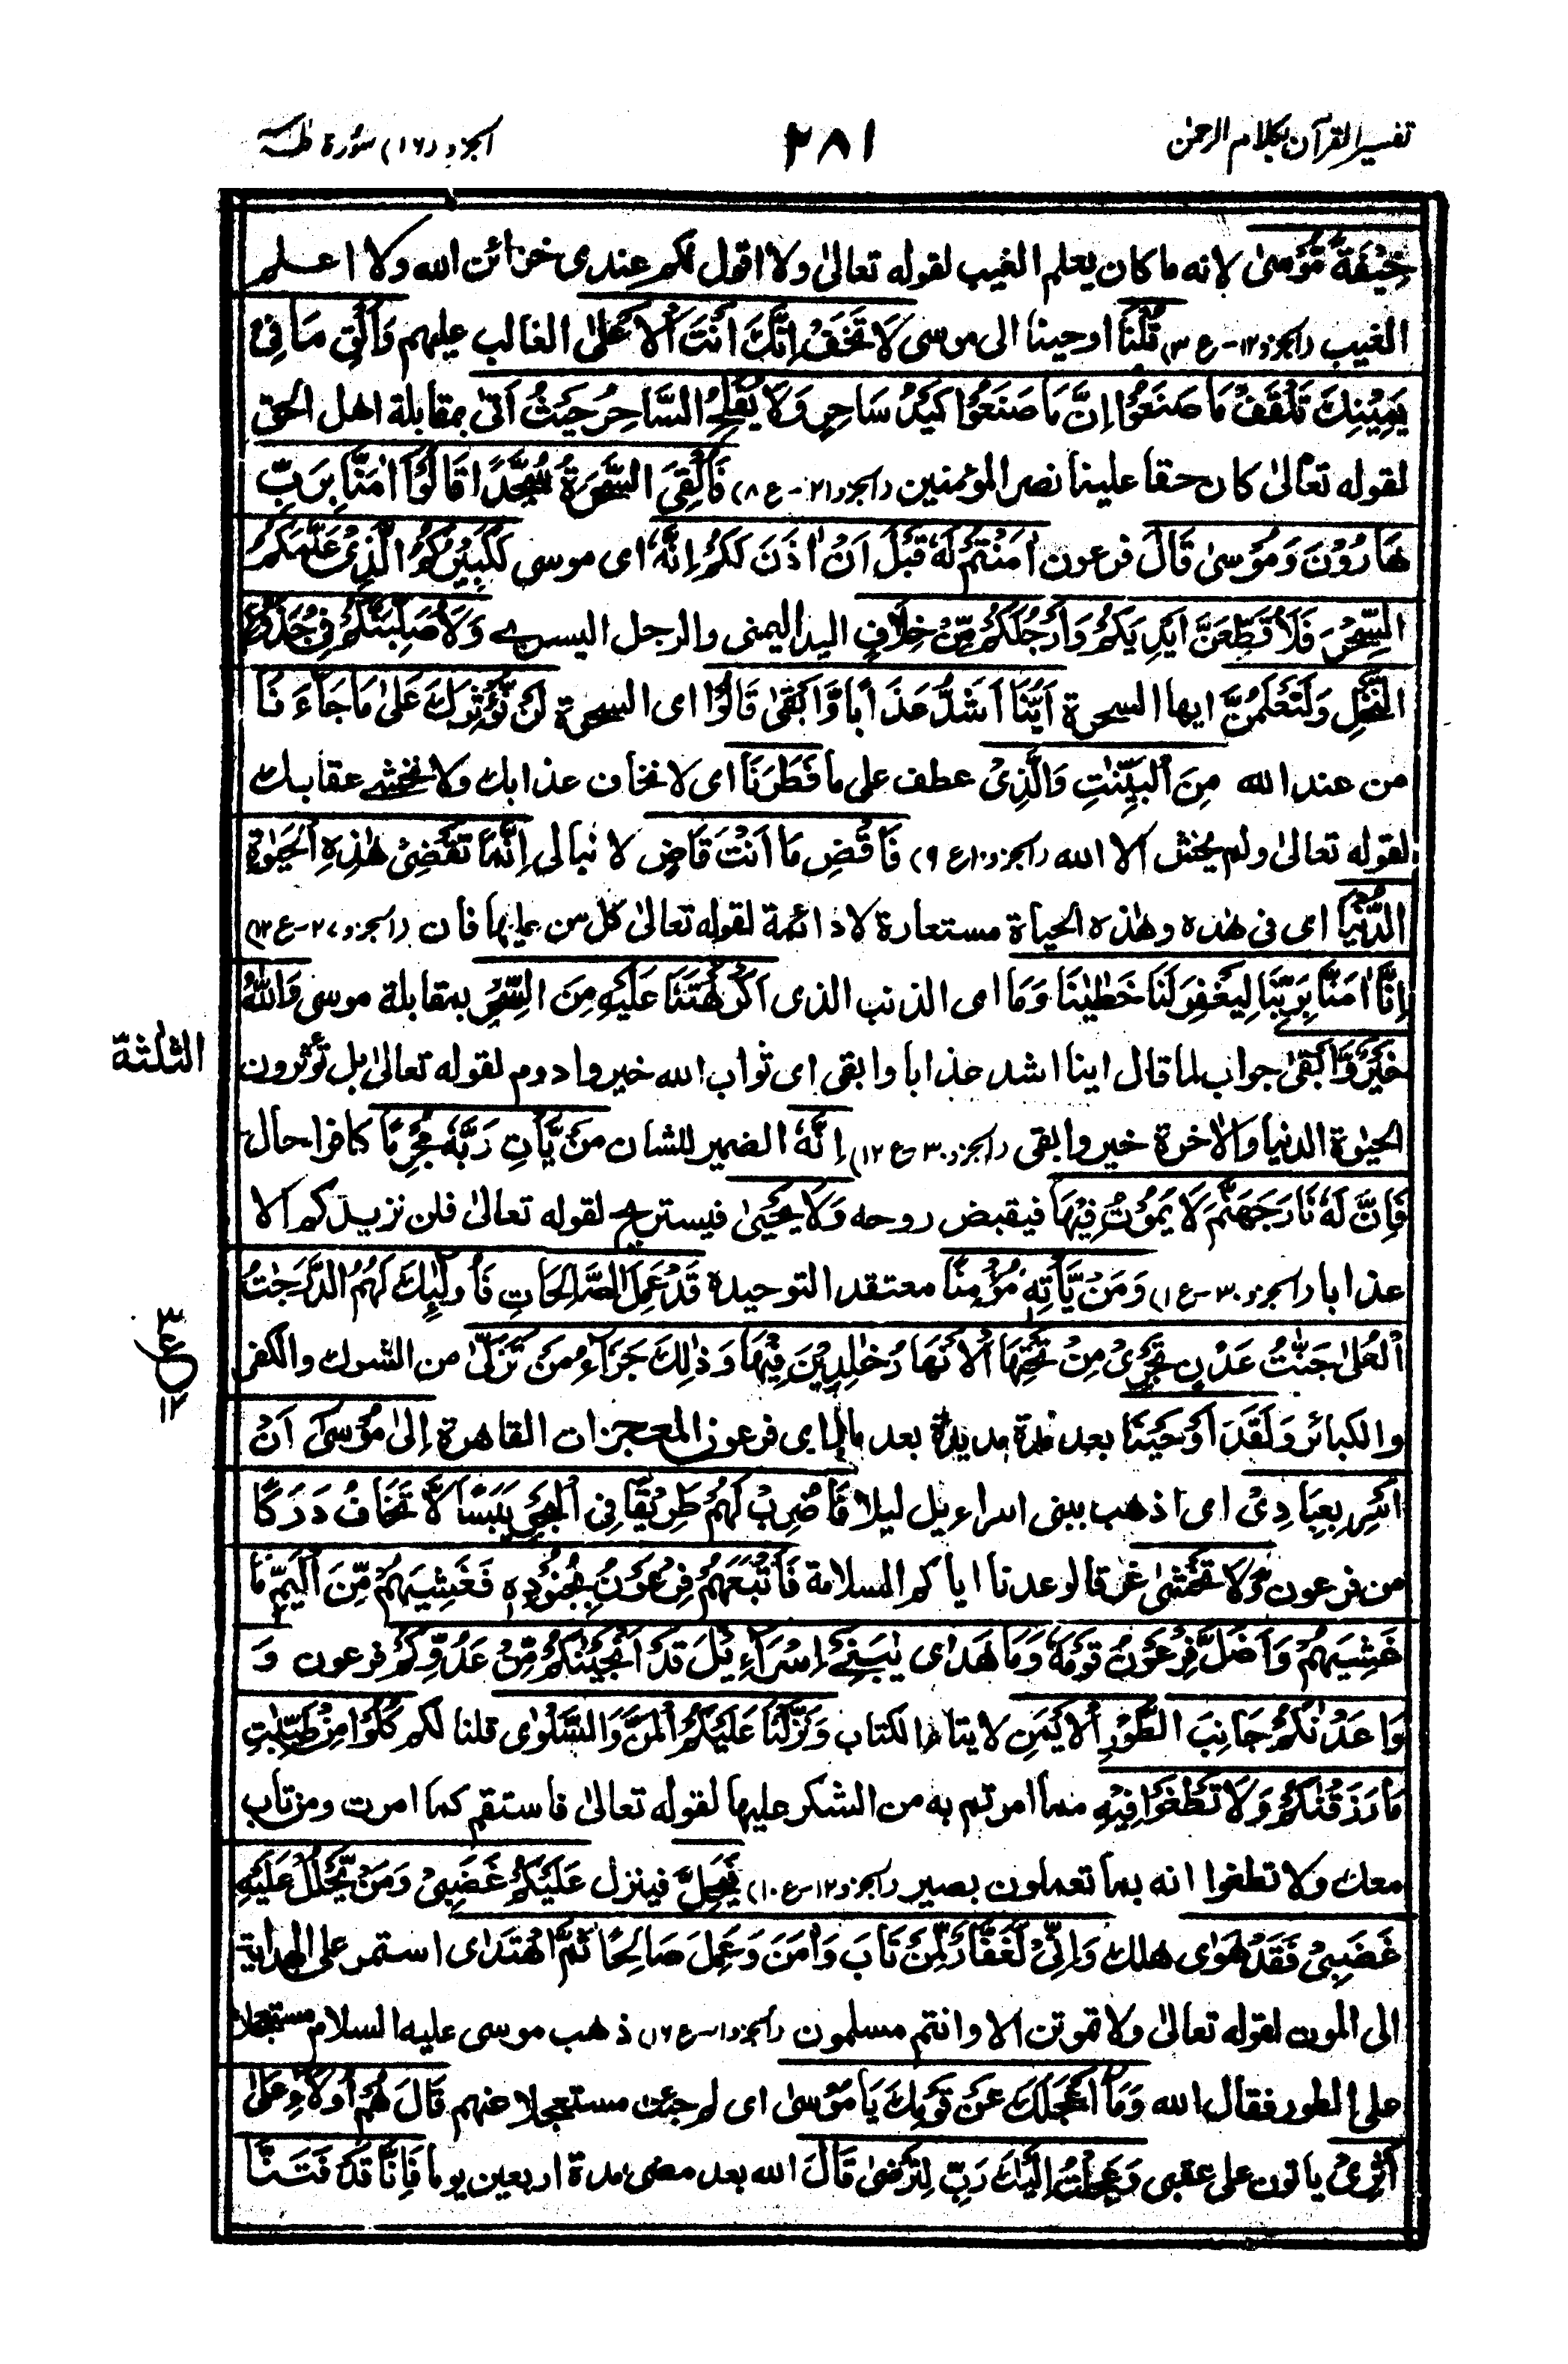 تفسير القرآن بكلام الرحمٰن
٢٨١
الجزء (١٦) سُورة طٰهٰ
خِيْفَةً مُّوْسٰى لانه ما كان يعلم الغيب لقوله تعالىٰ ولا اقول لكم عندى خزائن الله ولا اعلم
الغيب (الجزو ١٢-ع ٣) قُلْنَا اوحينا الى موسى لَا تَخَفْ اِنَّكَ اَنْتَ الْاَعْلىٰ الغالب عليهم وَاَلْقِ مَا فِىْ
يَمِيْنِكَ تَلْقَفْ مَا صَنَعُوْا اِنَّ مَا صَنَعُوْا كَيْدُ سَاحِرٍ وَلَا يُفْلِحُ السَّاحِرُ حَيْثُ اَتىٰ بمقابلة اهل الحق
لقوله تعالىٰ كان حقا علينا نصر المؤمنين (الجزو ٢١-ع ٨) فَاُلْقِىَ السَّحَرَةُ سُجَّدًا قَالُوْا اٰمَنَّا بِرَبِّ
هَارُوْنَ وَمُوْسىٰ قَالَ فرعون اٰمَنْتُمْ لَهٗ قَبْلَ اَنْ اٰذَنَ لَكُمْ اِنَّهٗ اى موسى لَكَبِيْرُكُمُ الَّذِىْ عَلَّمَكُمُ
السِّحْرَ فَلَاُقَطِّعَنَّ اَيْدِيَكُمْ وَاَرْجُلَكُمْ مِّنْ خِلَافٍ اليد اليمنى والرجل اليسرے وَلَاُصَلِّبَنَّكُمْ فِىْ جُذُوْعِ
النَّخْلِ وَلَتَعْلَمُنَّ ايها السحرة اَيُّنَا اَشَدُّ عَذَابًا وَّاَبْقىٰ قَالُوْا اى السحرة لَنْ نُّؤْثِرَكَ عَلىٰ مَا جَاۤءَنَا
من عند الله مِنَ الْبَيِّنٰتِ وَالَّذِىْ عطف على ما فَطَرَنَا اى لا نخاف عذابك ولا نخشے عقابك
لقوله تعالىٰ ولم يخش الا الله (الجزو ١٠ ع ٩) فَاقْضِ مَا اَنْتَ قَاضٍ لا نبالى اِنَّمَا تَقْضِىْ هٰذِهِ الْحَيٰوةَ
الدُّنْيَا اى فى هٰذه وهٰذه الحياة مستعارة لا دائمة لقوله تعالىٰ كل من عليها فان (الجزو ٢٧-ع ١٢)
اِنَّا اٰمَنَّا بِرَبِّنَا لِيَغْفِرَ لَنَا خَطٰيٰنَا وَمَا اى الذنب الذى اَكْرَهْتَنَا عَلَيْهِ مِنَ السِّحْرِ بمقابلة موسى وَاللّٰهُ
خَيْرٌ وَّاَبْقىٰ جواب لما قال اينا اشد عذابا وابقى اى ثواب الله خير وادوم لقوله تعالىٰ بل تؤثرون
الثلٰثة
الحيٰوة الدنيا والاٰخرة خير وابقى (الجزو ٣٠-ع ١٢) اِنَّهٗ الضمير للشان مَنْ يَّأْتِ رَبَّهٗ مُجْرِمًا كافرا حال
فَاِنَّ لَهٗ نَارَ جَهَنَّمَ لَا يَمُوْتُ فِيْهَا فيقبض روحه وَلَا يَحْيىٰ فيستريح لقوله تعالىٰ فلن نزيدكم الا
عذابا (الجزو ٣٠-ع ١) وَمَنْ يَّأْتِهٖ مُؤْمِنًا معتقد التوحيده قَدْ عَمِلَ الصَّالِحَاتِ فَاُولٰۤئِكَ لَهُمُ الدَّرَجٰتُ
٣
ع
١٢
الْعُلىٰ جَنّٰتُ عَدْنٍ تَجْرِىْ مِنْ تَحْتِهَا الْاَنْهَارُ خٰلِدِيْنَ فِيْهَا وَذٰلِكَ جَزَاۤءُ مَنْ تَزَكّٰى من الشرك والكفر
والكبائر وَلَقَدْ اَوْحَيْنَا بعد مدة مديدة بعد ما فرعون المعجزات القاهرة اِلىٰ مُوْسىٰ اَنْ
اَسْرِ بِعِبَادِىْ اى اذهب ببنى اسراءيل ليلا فَاضْرِبْ لَهُمْ طَرِيْقًا فِى الْبَحْرِ يَبَسًا لَّا تَخَافُ دَرَكًا
من فرعون وَّلَا تَخْشىٰ غرقا لوعدنا اياكم السلامة فَاَتْبَعَهُمْ فِرْعَوْنُ بِجُنُوْدِهٖ فَغَشِيَهُمْ مِّنَ الْيَمِّ مَا
غَشِيَهُمْ وَاَضَلَّ فِرْعَوْنُ قَوْمَهٗ وَمَا هَدٰى يٰبَنِىْۤ اِسْرَاۤءِيْلَ قَدْ اَنْجَيْنٰكُمْ مِّنْ عَدُوِّكُمْ فرعون وَ
وَاعَدْنٰكُمْ جَانِبَ الطُّوْرِ الْاَيْمَنِ لايتاء الكتاب وَنَزَّلْنَا عَلَيْكُمُ الْمَنَّ وَالسَّلْوٰى قلنا لكم كُلُوْا مِنْ طَيِّبٰتِ
مَا رَزَقْنٰكُمْ وَلَا تَطْغَوْا فِيْهِ مما امرتم به من الشكر عليها لقوله تعالىٰ فاستقم كما امرت ومن تاب
معك ولا تطغوا انه بما تعملون بصير (الجزو ١٢-ع ١٠) فَيَحِلَّ فينزل عَلَيْكُمْ غَضَبِىْ وَمَنْ يَّحْلِلْ عَلَيْهِ
غَضَبِىْ فَقَدْ هَوٰى هلك وَاِنِّىْ لَغَفَّارٌ لِّمَنْ تَابَ وَاٰمَنَ وَعَمِلَ صَالِحًا ثُمَّ اهْتَدٰى استمر على الهداية
الى الموت لقوله تعالىٰ ولا تموتن الا وانتم مسلمون (الجزو ١-ع ١٦) ذهب موسى عليه السلام مستعجلا
على الطور فقال الله وَمَاۤ اَعْجَلَكَ عَنْ قَوْمِكَ يَا مُوْسىٰ اى لم جئت مستعجلا عنهم قَالَ هُمْ اُولَاۤءِ عَلىٰ
اَثَرِىْ ياتون على عقبى وَعَجِلْتُ اِلَيْكَ رَبِّ لِتَرْضىٰ قَالَ الله بعد مضى مدة اربعين يوما فَاِنَّا قَدْ فَتَنَّا